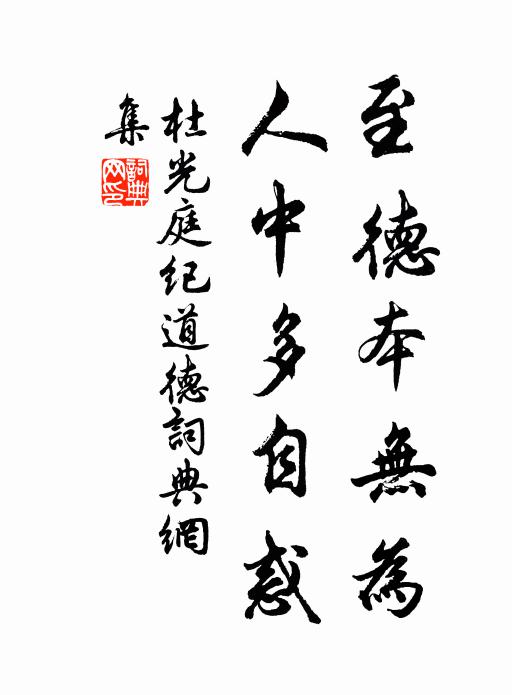 至德本無為
人中多自惑
杜光庭紀道德詞典網
集
詞典網印